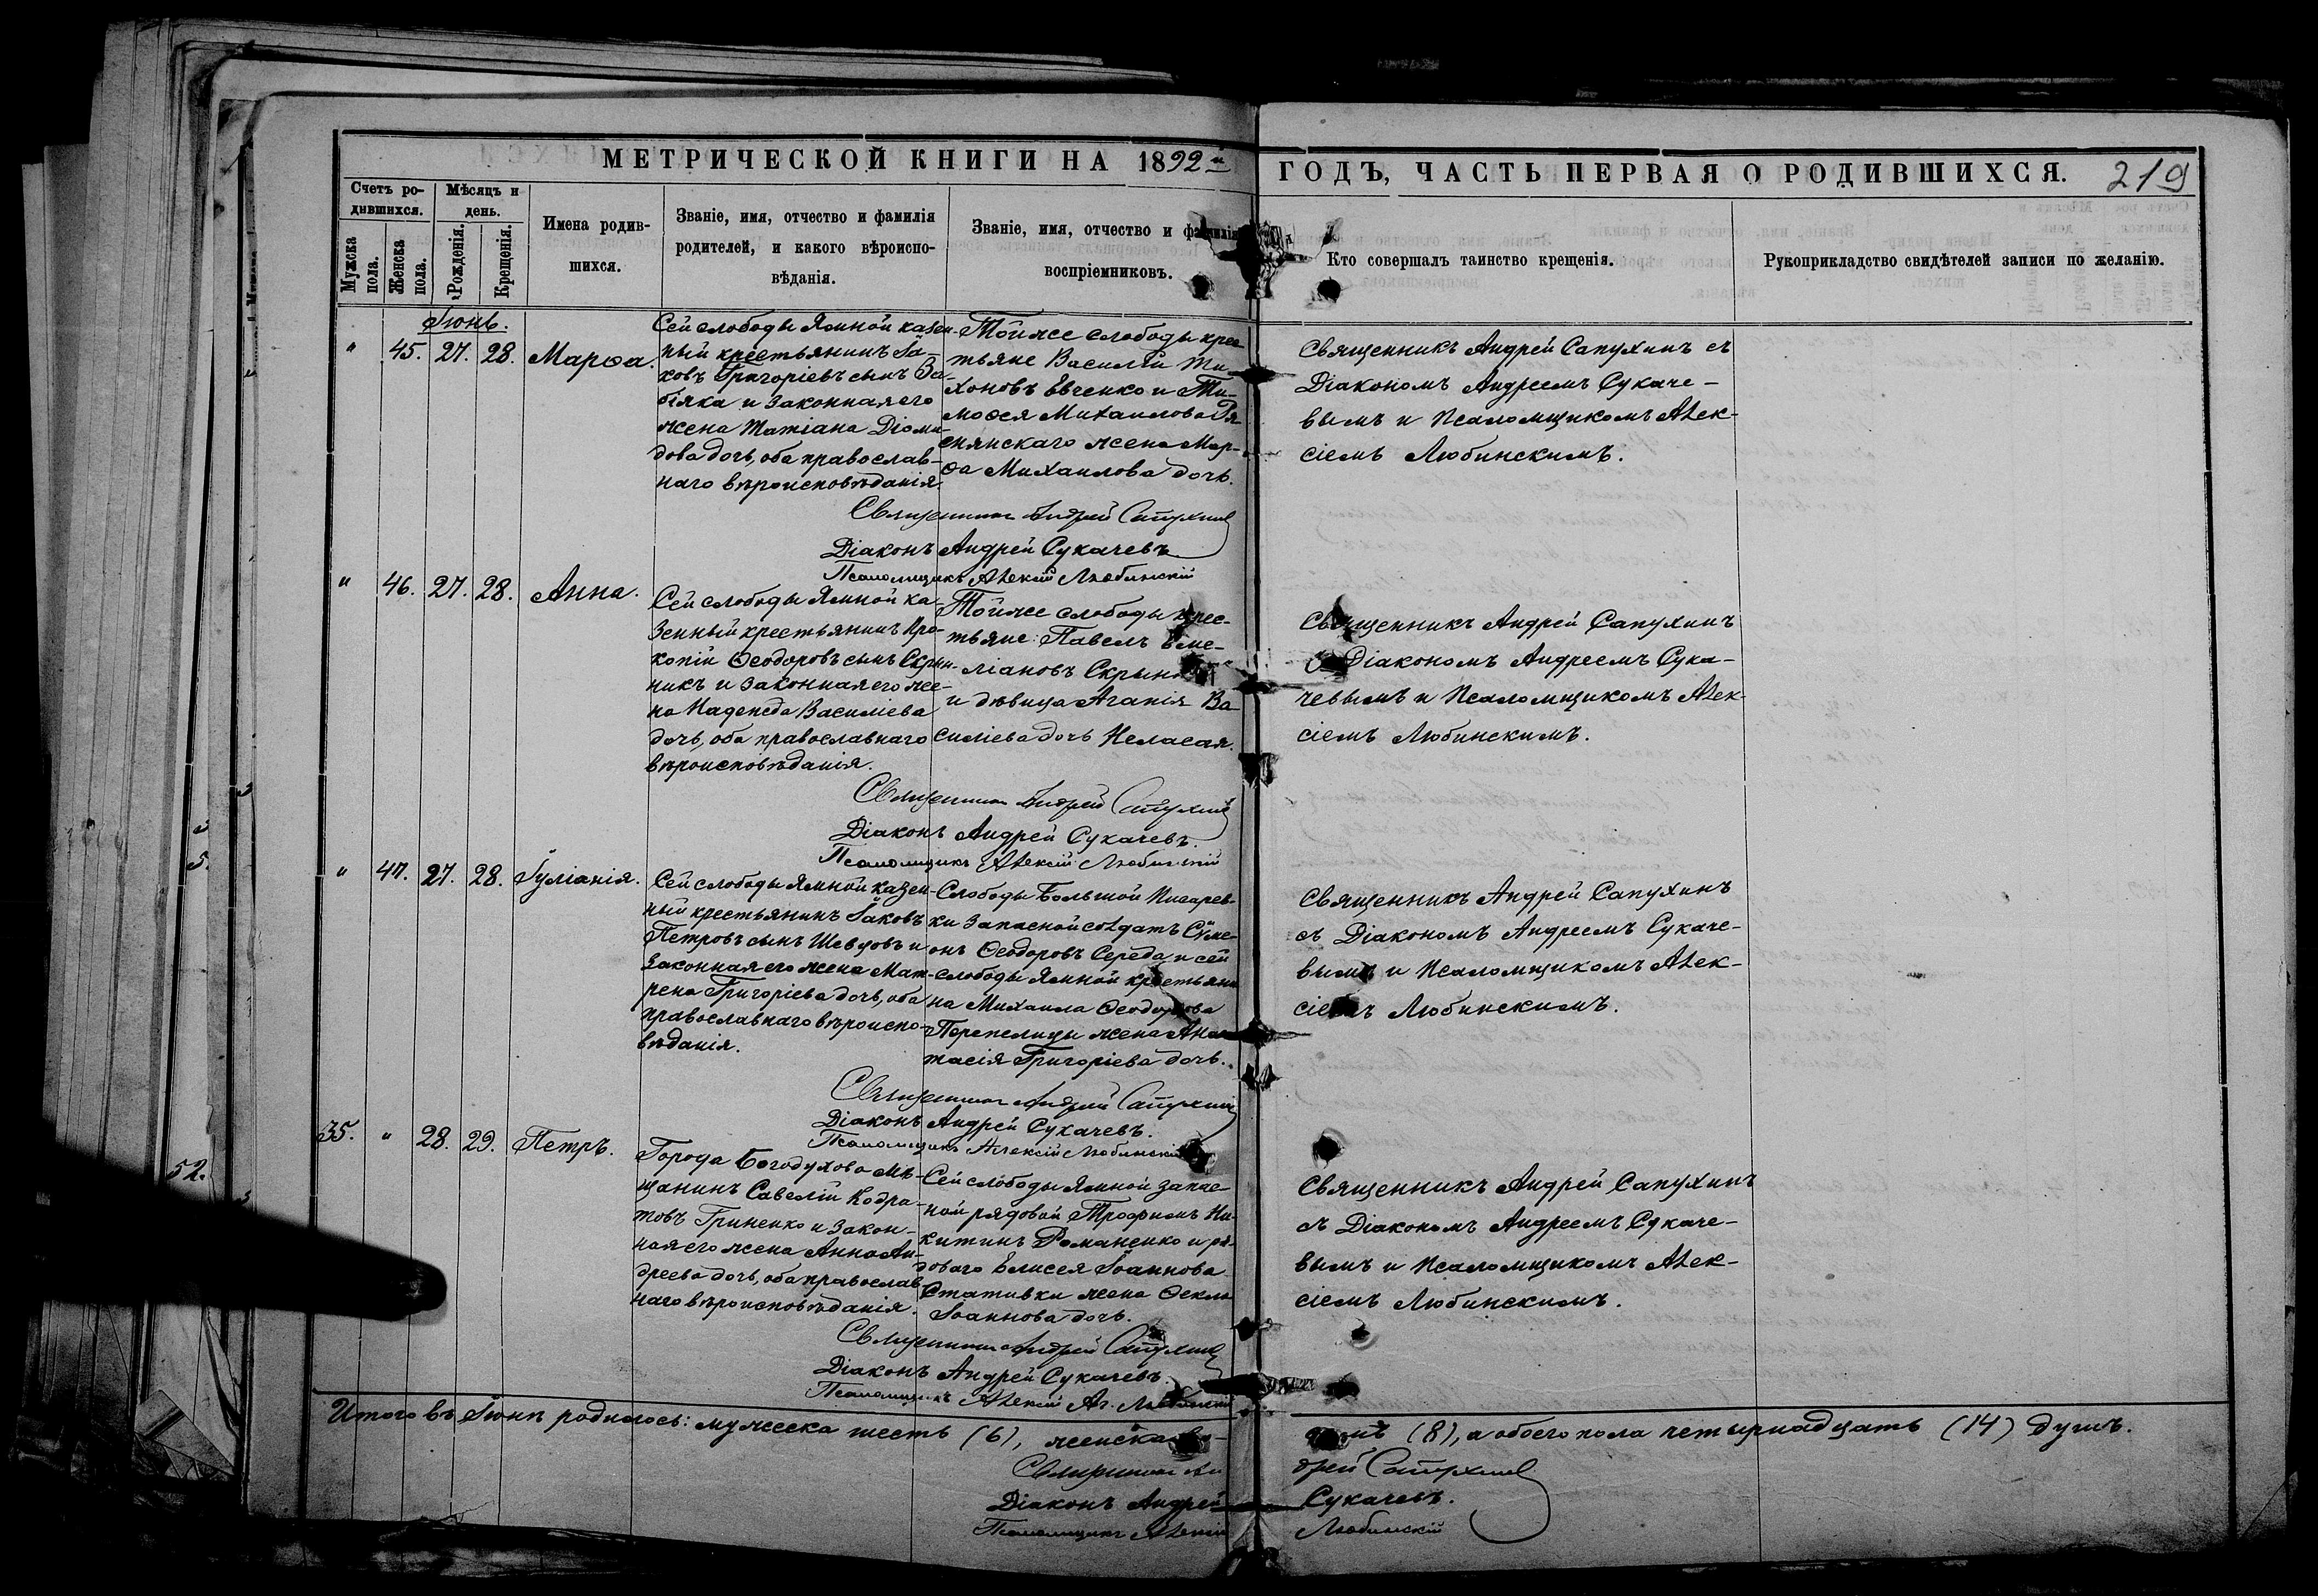 МЕТРИЧЕСКОЙ КНИГИ НА 1892й ГОДЪ, ЧАСТЬ ПЕРВАЯ О РОДИВШИХСЯ. 219
Счетъ ро-
дившихся.
Мужска пола.
Женска пола.
Мѣсяцъ и
день.
Рожденія.
Крещенія.
Имена родив-
шихся.
Званіе, имя, отчество и фамилія
родителей, и какого вѣроиспо-
вѣданія.
Званіе, имя, отчество и фамилія
воспріемниковъ.
Кто совершалъ таинство крещенія.
Рукоприкладство свидѣтелей записи по желанію.
Іюнь.
" 45. 27. 28. Марѳа.
Сей слободы Ямной казен-
ный крестьянинъ Іа-
ковъ Григоріевъ сынъ За-
бѣяка и законная его
жена Татіана Діоми-
дова дочь, оба православ-
наго вѣроисповѣданія.
Тойже слободы крес-
тьяне Василій Ти-
хоновъ Евченко и Ти-
моѳея Михаилова Ря-
снянскаго жена Мар-
ѳа Михаилова дочь.
Священникъ Андрей Сапухинъ съ
Діакономъ Андреемъ Сукаче-
вымъ и Псаломщикомъ Алек-
сіемъ Любинскимъ.
Священникъ Андрей Сапухинъ
Діаконъ Андрей Сукачевъ.
Псаломщикъ Алексій Любинскій
" 46. 27. 28. Анна.
Сей слободы Ямной ка-
зенный крестьянинъ Про-
копій Ѳеодоровъ сынъ Скрын-
никъ и законная его же-
на Надежда Василіева
дочь, оба православнаго
вѣроисповѣданія.
Тойже слободы крес-
тьяне: Павелъ Еме-
ліановъ Скрынникъ
и дѣвица Агапія Ва-
силіева дочь Неласая.
Священникъ Андрей Сапухинъ
съ Діакономъ Андреемъ Сука-
чевымъ и Псаломщикомъ Алек-
сіемъ Любинскимъ.
Священникъ Андрей Сапухинъ
Діаконъ Андрей Сукачевъ.
Псаломщикъ Алексій Любинскій
" 47. 27. 28. Іуліанія.
Сей слободы Ямной казен-
ный крестьянинъ Іаковъ
Петровъ сынъ Шевцовъ и
законная его жена Мат-
рена Григоріева дочь, оба
православнаго вѣроиспо-
вѣданія.
Слободы Большой Писарев-
ки запасной солдатъ Сѵме-
онъ Ѳеодоровъ Середа и сей
слободы Ямной крестьяни-
на Михаила Ѳеодорова
Перепелицы жена Анас-
тасія Григоріева дочь.
Священникъ Андрей Сапухинъ
съ Діакономъ Андреемъ Сукаче-
вымъ и Псаломщикомъ Алек-
сіемъ Любинскимъ.
Священникъ Андрей Сапухинъ
Діаконъ Андрей Сукачевъ.
Псаломщикъ Алексій Любинскій
35. " 28. 29. Петръ.
Города Богодухова мѣ-
щанинъ Савелій Кодра-
товъ Гриненко и закон-
ная его жена Анна Ан-
дреева дочь, оба православ-
наго вѣроисповѣданія.
Сей слободы Ямной запас-
ной рядовой Трофимъ Ни-
китинъ Романенко и ря-
доваго Елисея Іоаннова
Стативки жена Ѳекла
Іоаннова дочь.
Священникъ Андрей Сапухинъ
съ Діакономъ Андреемъ Сукаче-
вымъ и Псаломщикомъ Алек-
сіемъ Любинскимъ.
Священникъ Андрей Сапухинъ
Діаконъ Андрей Сукачевъ.
Псаломщикъ Алексій Любинскій
52.
Итого въ Іюнѣ родилось: мужеска шесть (6), женска во- семь (8), а обоего пола четырнадцать (14) душъ.
Священникъ Андрей Сапухинъ
Діаконъ Андрей Сукачевъ.
Псаломщикъ Алексій Любинскій